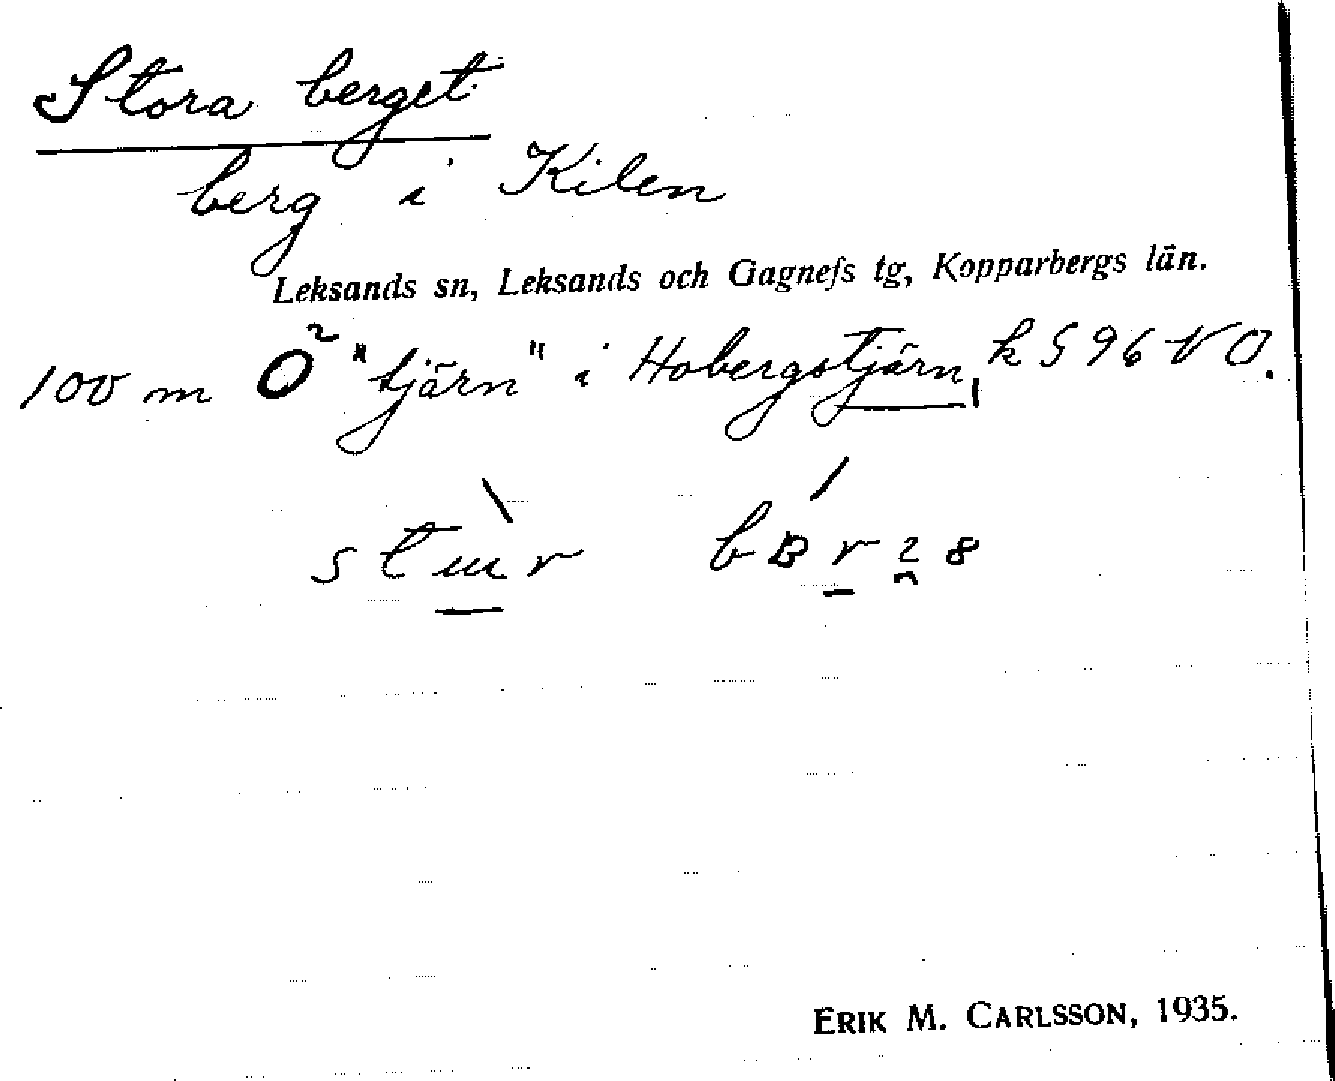 Stora berget
berg i Kilen
Leksands sn, Leksands och Gagnefs tg, Kopparbergs län.
100 m Ö "tjärn" i Hobergstjärn, k S 96 NO.
ERIK M. CARLSSON, 1935.